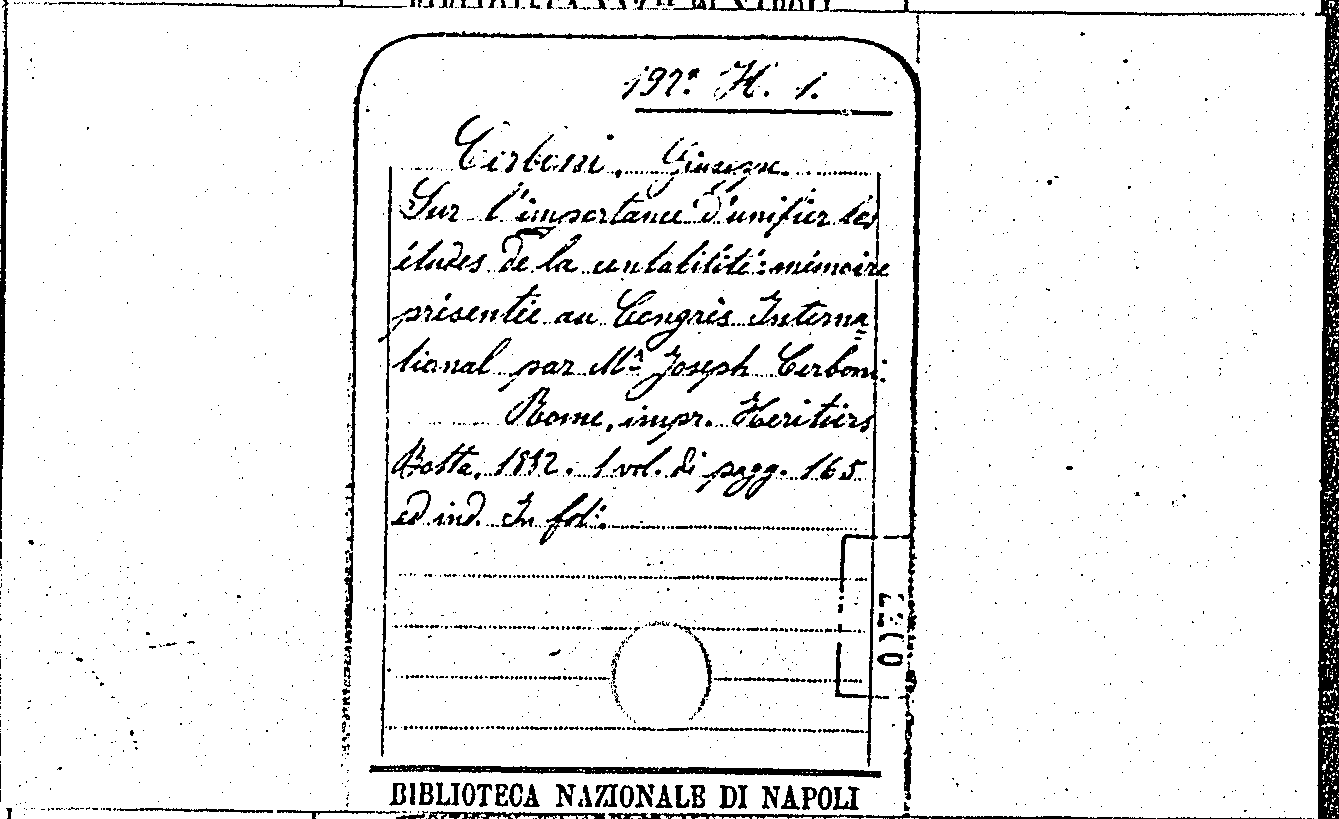 BIBLIOTECA NAZ. DI NAPOLI
192ª H. 1.
Cerboni, Giuseppe.
Sur l'importance d'unifier les
études de la contabilité: mémoire
présentée au Congrès Interna=
tional par Mr. Joseph Cerboni.
Rome, impr. Heritiers
Botta, 1882. 1 vol. di pagg. 165
ed ind. In fol.
BIBLIOTECA NAZIONALE DI NAPOLI